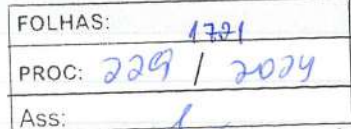 FOLHAS: 1721
PROC: 229 / 2024
Ass: